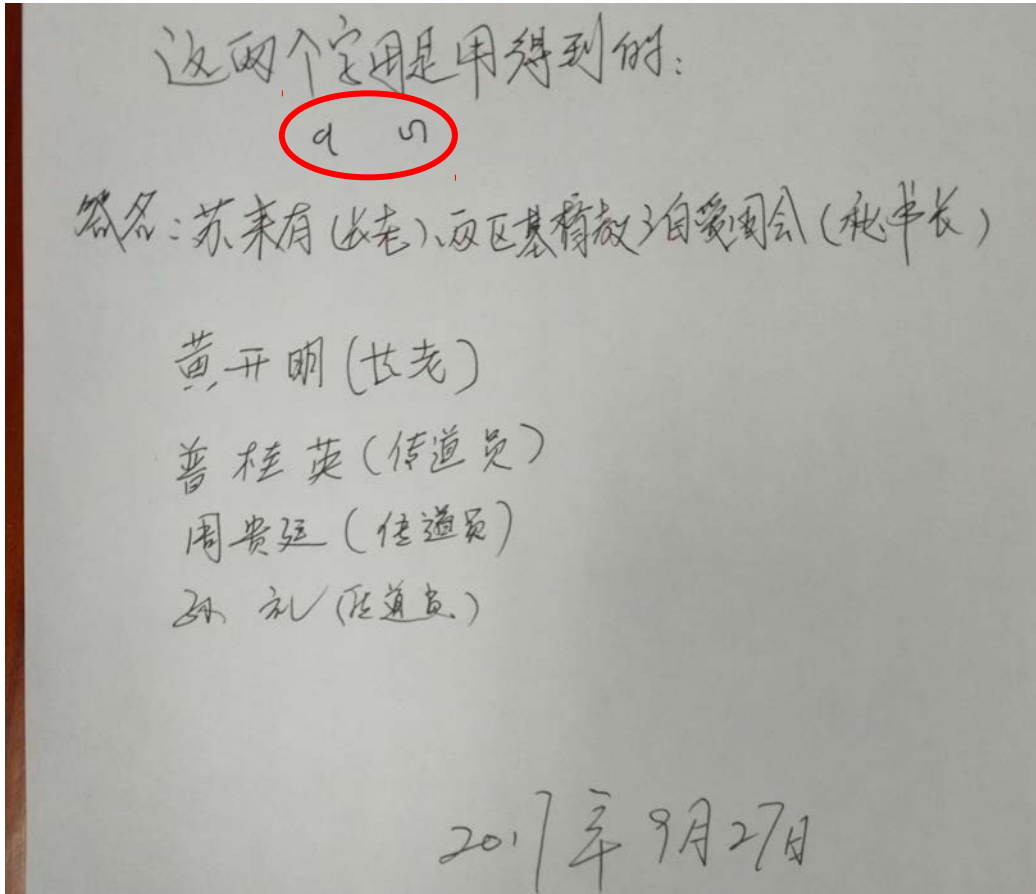 这两个字用是用得到的:
签名:苏来有(长老)、两区基督教三自爱国会(秘书长)
黄开明(长老)
普桂英(传道员)
周贵廷(传道员)
孙礼(传道员)
2017年9月27日